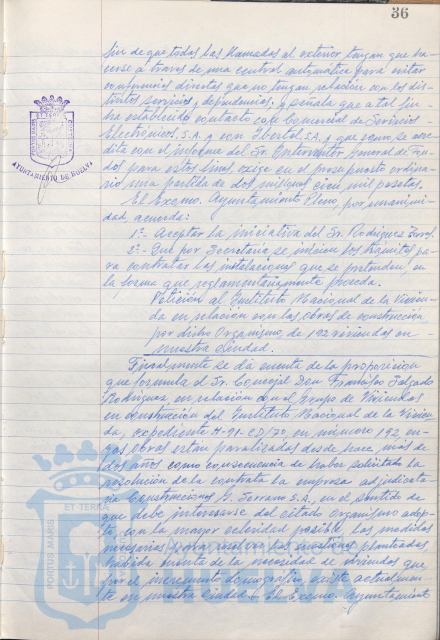 36
fin de que todas las llamadas al exterior tengan que ha-
cerse a traves de una central automática para evitar
conferencias directas que no tengan relación con los dis-
tintos servicios y dependencias, y señala que a tal fin
ha establecido contacto con Comercial de Servicios
Electrónicos, S.A. y con Ibertel S.A. y que segun se acre-
dita con el informe del Sr. Interventor General de Fon-
dos para estos fines existe en el presupuesto ordina-
rio una partida de dos millones cien mil pesetas.
El Excmo. Ayuntamiento Pleno, por unanimi-
dad, acuerda:
1º.- Aceptar la iniciativa del Sr. Rodríguez
2º.- Que por Secretaría se inicien los trámites pa-
ra contratar las instalaciones que se pretenden, en
la forma que reglamentariamente proceda.
Petición al Instituto Nacional de la Vivien-
da en relación con las obras de construcción
por dicho Organismo, de 192 viviendas en
nuestra Ciudad.
Finalmente se da cuenta de la proposición
que formula el Sr. Concejal Don Francisco Salgado
Rodríguez, en relación con el Grupo de Viviendas
en construcción del Instituto Nacional de la Vivien-
da, expediente H-91-CD/70 en número 192, cu-
yas obras están paralizadas desde hace más de
dos años como consecuencia de haber solicitado la
resolución de la contrata la empresa adjudicata-
ria Construcciones V. Serrano S.A., en el sentido de
que debe interesarse del citado Organismo adop-
te, con la mayor celeridad posible, las medidas
necesarias para resolver las cuestiones planteadas,
habida cuenta de la necesidad de viviendas que
por el incremento demográfico, existe actualmen-
te en nuestra ciudad. El Excmo. Ayuntamiento
AYUNTAMIENTO DE HUELVA
PORTUS MARIS
ET TERRAE